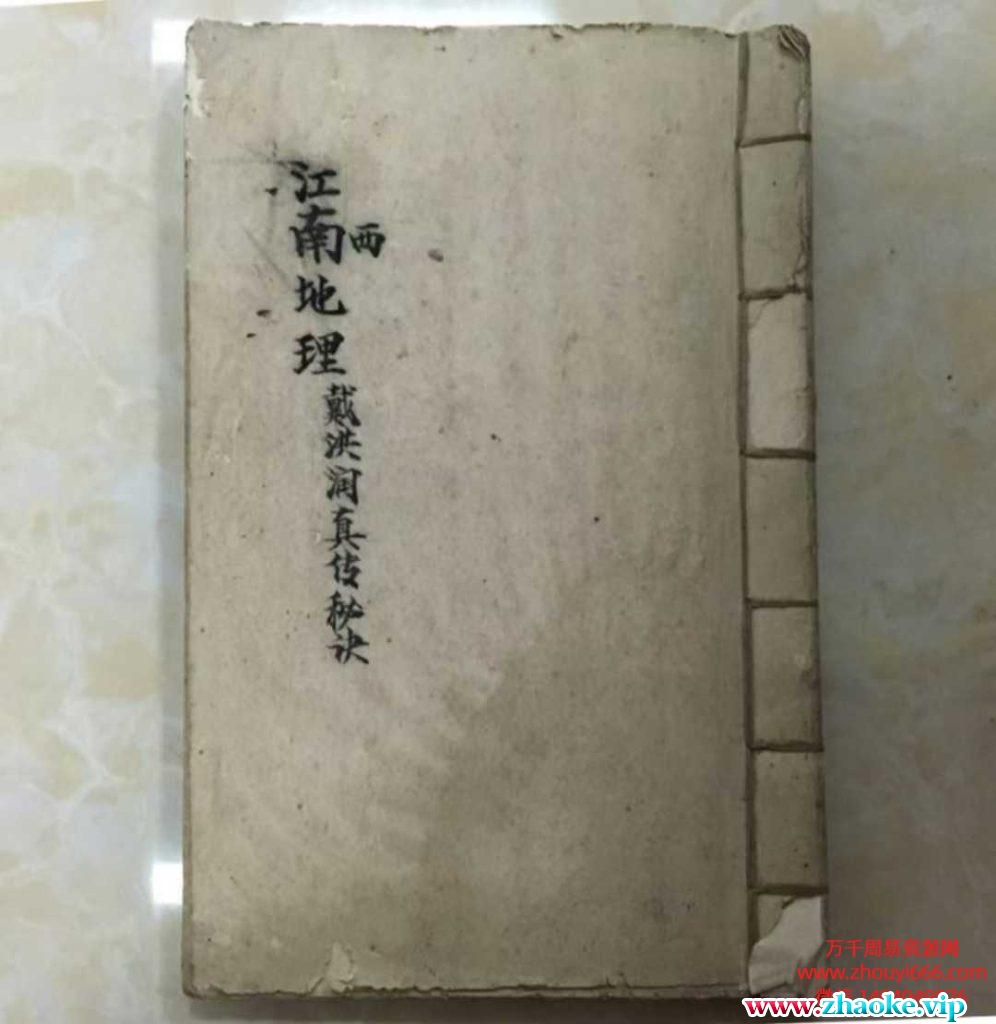 江南地理
西
戴洪润真传秘诀
万千周易资源网
www.zhouyi666.com
www.zhaoke.vip